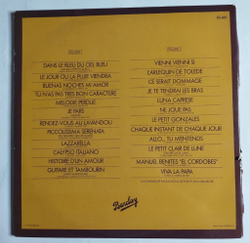 DANS LE BLEU DU CIEL BLEU
LE JOUR OU LA PLUIE VIENDRA
BUENAS NOCHES MI AMOR
TU N'AS PAS TRES BON CARACTERE
MELODIE PERDUE
JE PARS
RENDEZ-VOUS AU LAVANDOU
PICCOLISSIMA SERENATA
LAZZARELLA
CALYPSO ITALIANO
HISTOIRE D'UN AMOUR
GUITARE ET TAMBOURIN
VIENNI VIENNI SI
L'ARLEQUIN DE TOLEDE
CE SERAIT DOMMAGE
JE TE TENDRAI LES BRAS
LUNA CAPRESE
NE JOUE PAS
LE PETIT GONZALES
CHAQUE INSTANT DE CHAQUE JOUR
ALLO... TU M'ENTENDS
LE PETIT CLAIR DE LUNE
MANUEL BENITES "EL CORDOBES"
VIVA LA PAPA
Barclay